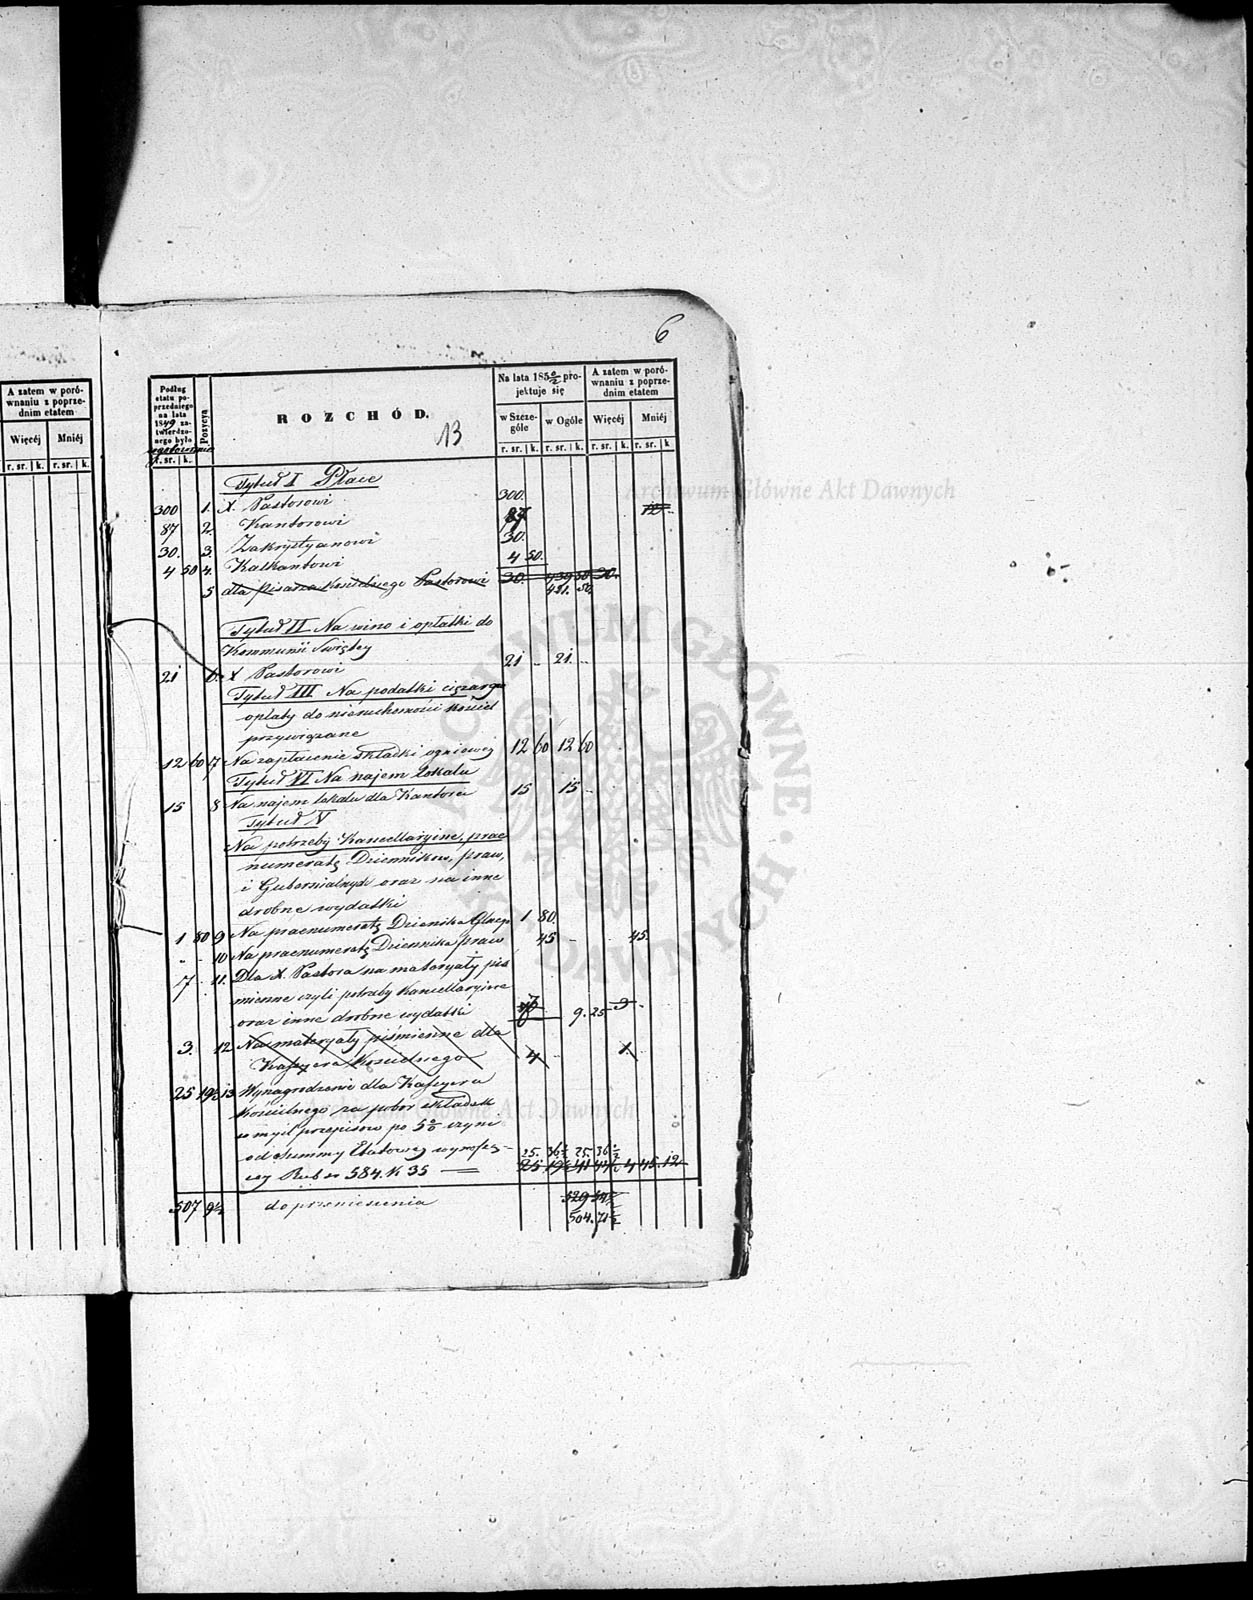 6
A zatem w poró-
wnaniu z poprze-
dnim etatem
Więcéj Mniéj
r. sr. k. r. sr. k.
Podług
etatu po-
przedniego
na lata
1849 za-
twierdzo-
nego było
r. sr. k.
Pozycya
ROZCHÓD.
13
Na lata 185 0/2 pro-
jektuje się
w Szcze-
góle
w Ogóle
r. sr. k. r. sr. k.
A zatem w poró-
wnaniu z poprze-
dnim etatem
Więcéj Mniéj
r. sr. k. r. sr. k
Tytuł I Płace
300 1. X. Pastorowi 300.
87 2. Kantorowi 87
30. 3. Zakrystyanowi 30.
4 50 4. Kalkantowi 4 50.
5 dla pisarza kościelnego Pastorowi 30. 439 50 30.
421. 50.
Tytuł II Na wino i opłatki do
Kommunii Swiętey
21 6. X Pastorowi 21 21.
Tytuł III Na podatki ciężary
opłaty do nieruchomości kościel
przywiązane
12 60 7 Na zapłacenie składki ogniowej 12 60 12 60
Tytuł VI Na najem Lokalu
15 8 Na najem lokalu dla Kantora 15 15
Tytuł V
Na potrzeby Kancellaryine, prae
numeratę Dzienników, praw,
i Gubernialnych oraz na inne
drobne wydatki
1 80 9 Na praenumeratę Dziennika Głnego 1 80.
10 Na praenumeratę Dziennika praw 45 45.
7 11. Dla X. Pastora na materyały pis
mienne czyli potrzeby Kancellaryine
oraz inne drobne wydatki 9. 25 3
3. 12 Na materyały piśmienne dla
Kassyera Kościelnego 4 1.
25 19½ 13 Wynagrodzenie dla Kassyera
Kościelnego za pobór składek
w myśl przepisów po 5% czyni
od Summy Etatowey wynoszą-
cey Rub sr 584. k 35
25. 36½ 25. 36½
507 9½ do przeniesienia 529
504. 71½
Archiwum Główne Akt Dawnych
Archiwum Główne Akt Dawnych
ARCHIWUM GŁÓWNE AKT DAWNYCH